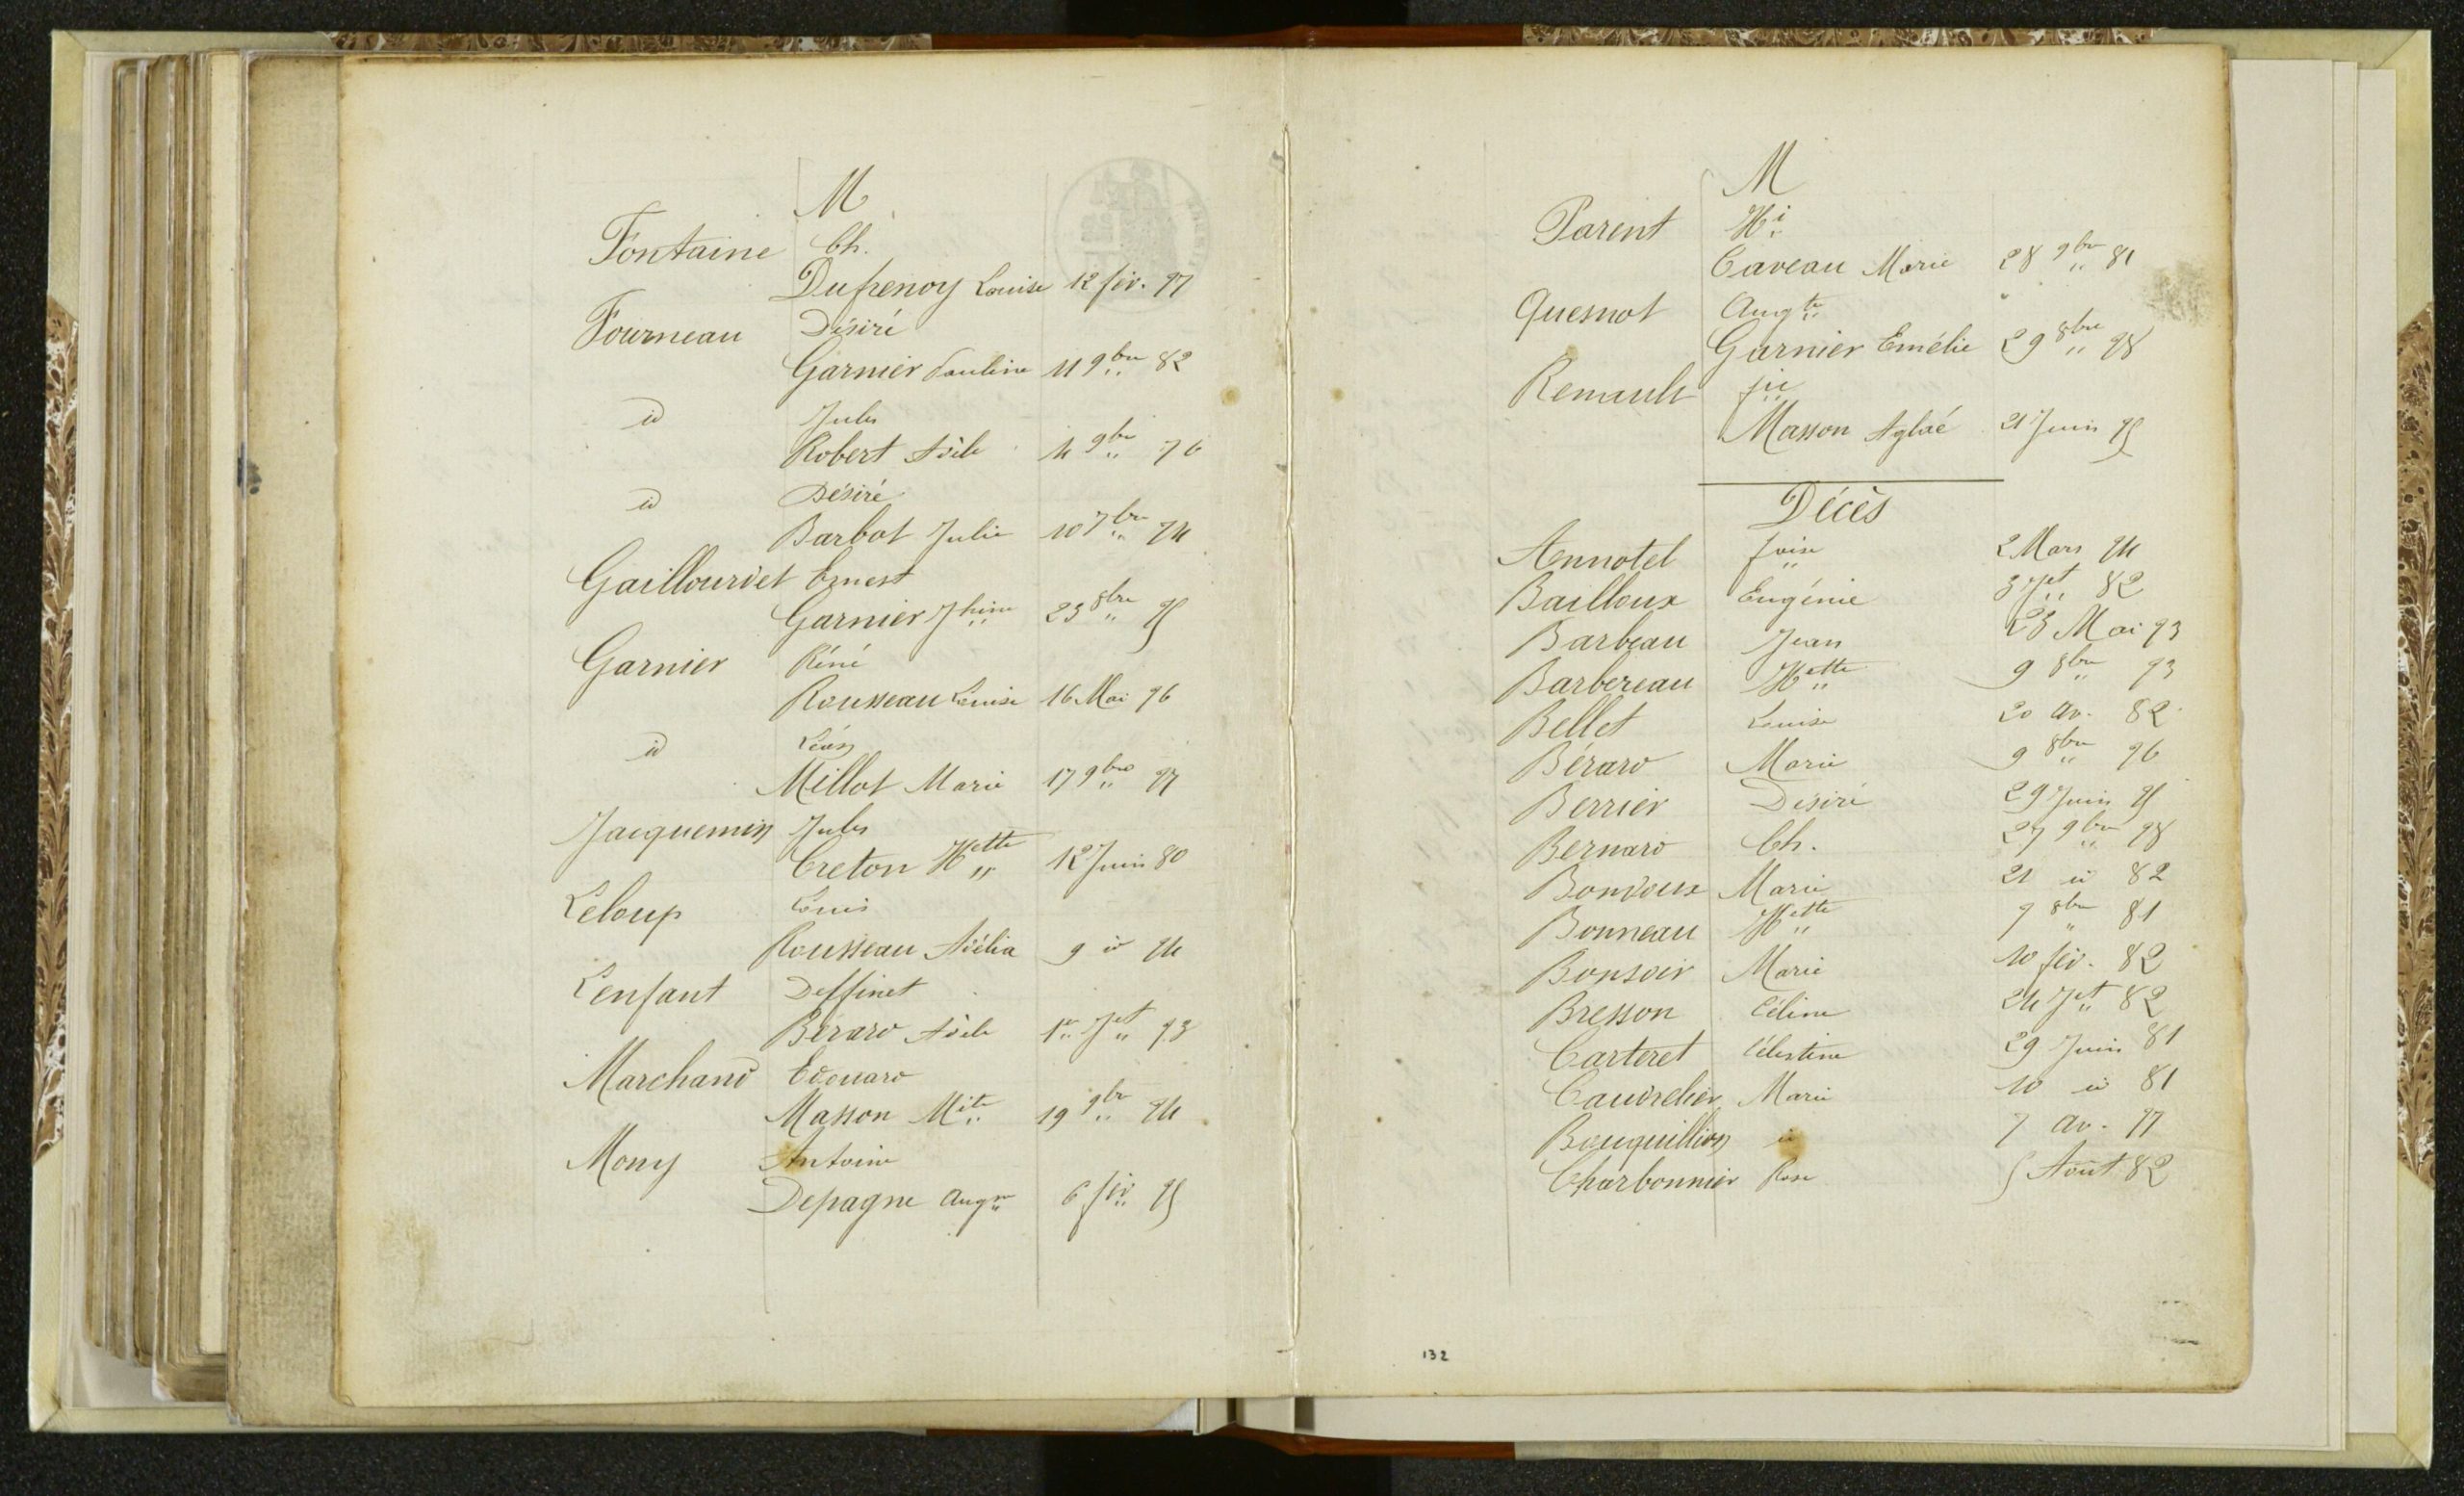 M
Fontaine Ch.
Dufrenoy Louise 12 fév. 77
Fourneau Désiré
Garnier Pauline 11 9bre 82
id Jules
Robert Adèle 4 9bre 76
id Désiré
Barbat Julie 10 7bre 74
Gaillourdet Ernest
Garnier Jhine 23 8bre 75
Garnier Réné
Rousseau Louise 16 Mai 76
id Léon
Millot Marie 17 9bre 77
Jacquemin Jules
Creton Hette 12 Juin 80
Leloup Louis
Rousseau Adélia 9 id 74
Lenfant Deffinet
Bérard Adèle 1er Jet 73
Marchand Edouard
Masson Mite 19 9bre 74
Mony Antoine
Depagne Augne 6 fév 75
M
Parent Hi
Caveau Marie 28 9bre 81
Quesnot Augte
Garnier Emélie 29 8bre 78
Renault
Masson Aglaé 21 Juin 75
Décès
Annotel foise 2 Mars 74
Bailloux Eugénie 3 Jet 82
Barbeau Jean 23 Mai 73
Barbereau Hette 9 8bre 73
Bellet Louise 20 av. 82
Bérard Marie 9 8bre 76
Berrier Désiré 29 Juin 75
Bernard Ch. 27 9bre 78
Bondoux Marie 21 id 82
Bonneau Hette 7 8bre 81
Bonsoir Marie 10 fév. 82
Bresson Céline 24 Jet 82
Carteret Célestine 29 Juin 81
Caudrelier Marie 10 id 81
Bouquillion id 7 av. 77
Charbonnier Rose 5 Août 82
132